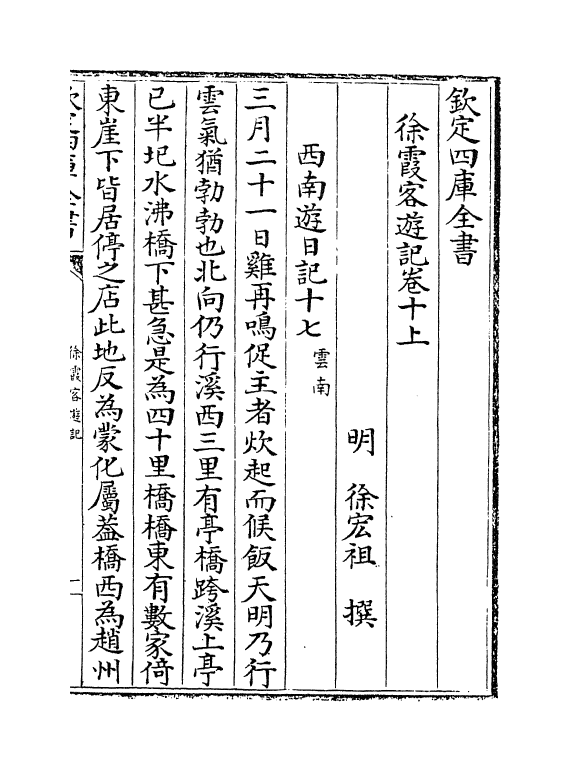 欽定四庫全書
徐霞客遊記卷十上
明 徐宏祖 撰
西南遊日記十七 雲南
三月二十一日雞再鳴促主者炊起而候飯天明乃行
雲氣猶勃勃也北向仍行溪西三里有亭橋跨溪上亭
已半圯水沸橋下甚急是為四十里橋橋東有數家倚
東崖下皆居停之店此地反為蒙化屬葢橋西為趙州
徐霞客遊記
一